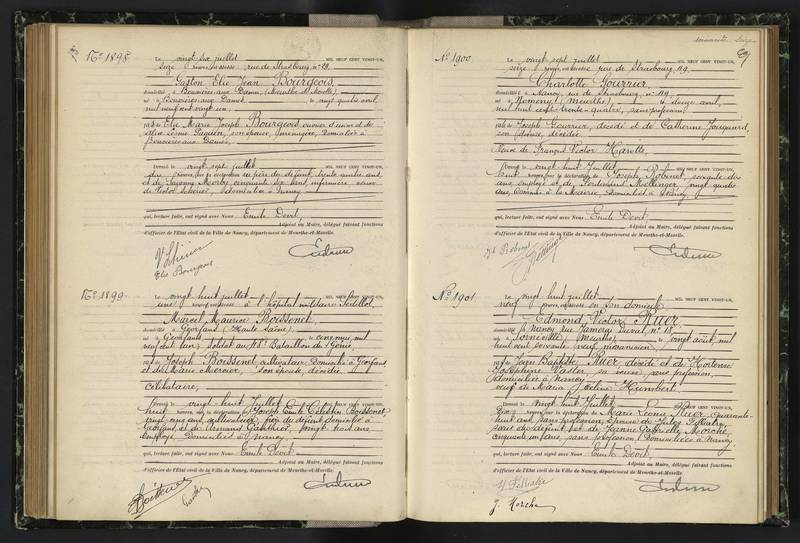 N°. 1898
Le vingt six juillet MIL NEUF CENT VINGT-UN,
seize heures, est décédé rue de Strasbourg n° 19,
Gaston Elie Jean Bourgeois,
domicilié à Bouxières aux Dames, (Meurthe et Moselle),
né à Bouxières aux Dames, le vingt août
mil neuf cent vingt un,
fils de Elie Marie Joseph Bourgeois, ouvrier d'usine et de
son épouse, ménagère, domiciliés à
Bouxières aux Dames,
Dressé le vingt sept juillet MIL NEUF CENT VINGT-UN,
dix heures, sur la déclaration du père du défunt, trente ans
et de cinquante six ans, infirmière, veuve
de domiciliée à Nancy
qui, lecture faite, ont signé avec Nous Emile Devit,
Adjoint au Maire, délégué faisant fonctions
d'officier de l'Etat civil de la Ville de Nancy, département de Meurthe-et-Moselle.
Elie Bourgeois
N°. 1899
Le vingt huit juillet MIL NEUF CENT VINGT-UN,
une heure, est décédé à l'hôpital militaire Sédillot,
Marcel Maurice Boissenet,
domicilié à Géorfans (Haute Saône),
né à Géorfans, le cinq mai mil
neuf cent un, soldat au Bataillon du Génie,
fils de Joseph Boissenet, cultivateur domicilié à Géorfans,
et de Marie Mercier, son épouse, décédée.
Célibataire,
Dressé le vingt-huit juillet MIL NEUF CENT VINGT-UN,
huit heures, sur la déclaration de Joseph Emile Célestin Boissenet
vingt cinq ans, cultivateur, frère du défunt, domicilié à
Géorfans, et de vingt trois ans
employé domicilié à Nancy
qui, lecture faite, ont signé avec Nous Emile Devit,
Adjoint au Maire, délégué faisant fonctions
d'officier de l'Etat civil de la Ville de Nancy, département de Meurthe-et-Moselle
soixante
N°. 1900
Le vingt sept juillet MIL NEUF CENT VINGT-UN,
seize heures, est décédée rue de Strasbourg, 119,
Charlotte Gourrier
domiciliée à Nancy, rue de Strasbourg, n° 119
née à Nomeny (Meurthe) le douze août,
mil huit cent trente-quatre, sans profession,
fille de Joseph Gourrier, décédé et de Catherine
son épouse, décédée.
Veuve de François Victor Harotte,
Dressé le vingt huit juillet MIL NEUF CENT VINGT-UN,
huit heures, sur la déclaration de Joseph Robinet, soixante dix
ans employé et de Ferdinand vingt quatre
ans, commis à la Mairie, domiciliés à Nancy,
qui, lecture faite, ont signé avec Nous Emile Devit,
Adjoint au Maire, délégué faisant fonctions
d'officier de l'Etat civil de la Ville de Nancy, département de Meurthe-et-Moselle.
N°. 1901
Le vingt huit juillet MIL NEUF CENT VINGT-UN,
neuf heures, est décédé en son domicile
Edmond Victor Ruer,
domicilié à Nancy rue n° 15
né à (Meurthe) le vingt août, mil
huit cent soixante neuf,
fils de Jean Baptiste Ruer, décédé et de Hortense
Joséphine Vasler, sa veuve, sans profession,
domiciliée à Nancy
veuf de Maria Humbert,
Dressé le vingt huit juillet MIL NEUF CENT VINGT-UN,
dix heures, sur la déclaration de Marie Léonie Ruer, quarante
huit ans, sans profession, épouse de Jules
sœur du défunt et de Jeanne
cinquante ans, sans profession, domiciliées à Nancy
qui, lecture faite, ont signé avec Nous Emile Devit,
Adjoint au Maire, délégué faisant fonctions
d'officier de l'Etat civil de la Ville de Nancy, département de Meurthe-et-Moselle